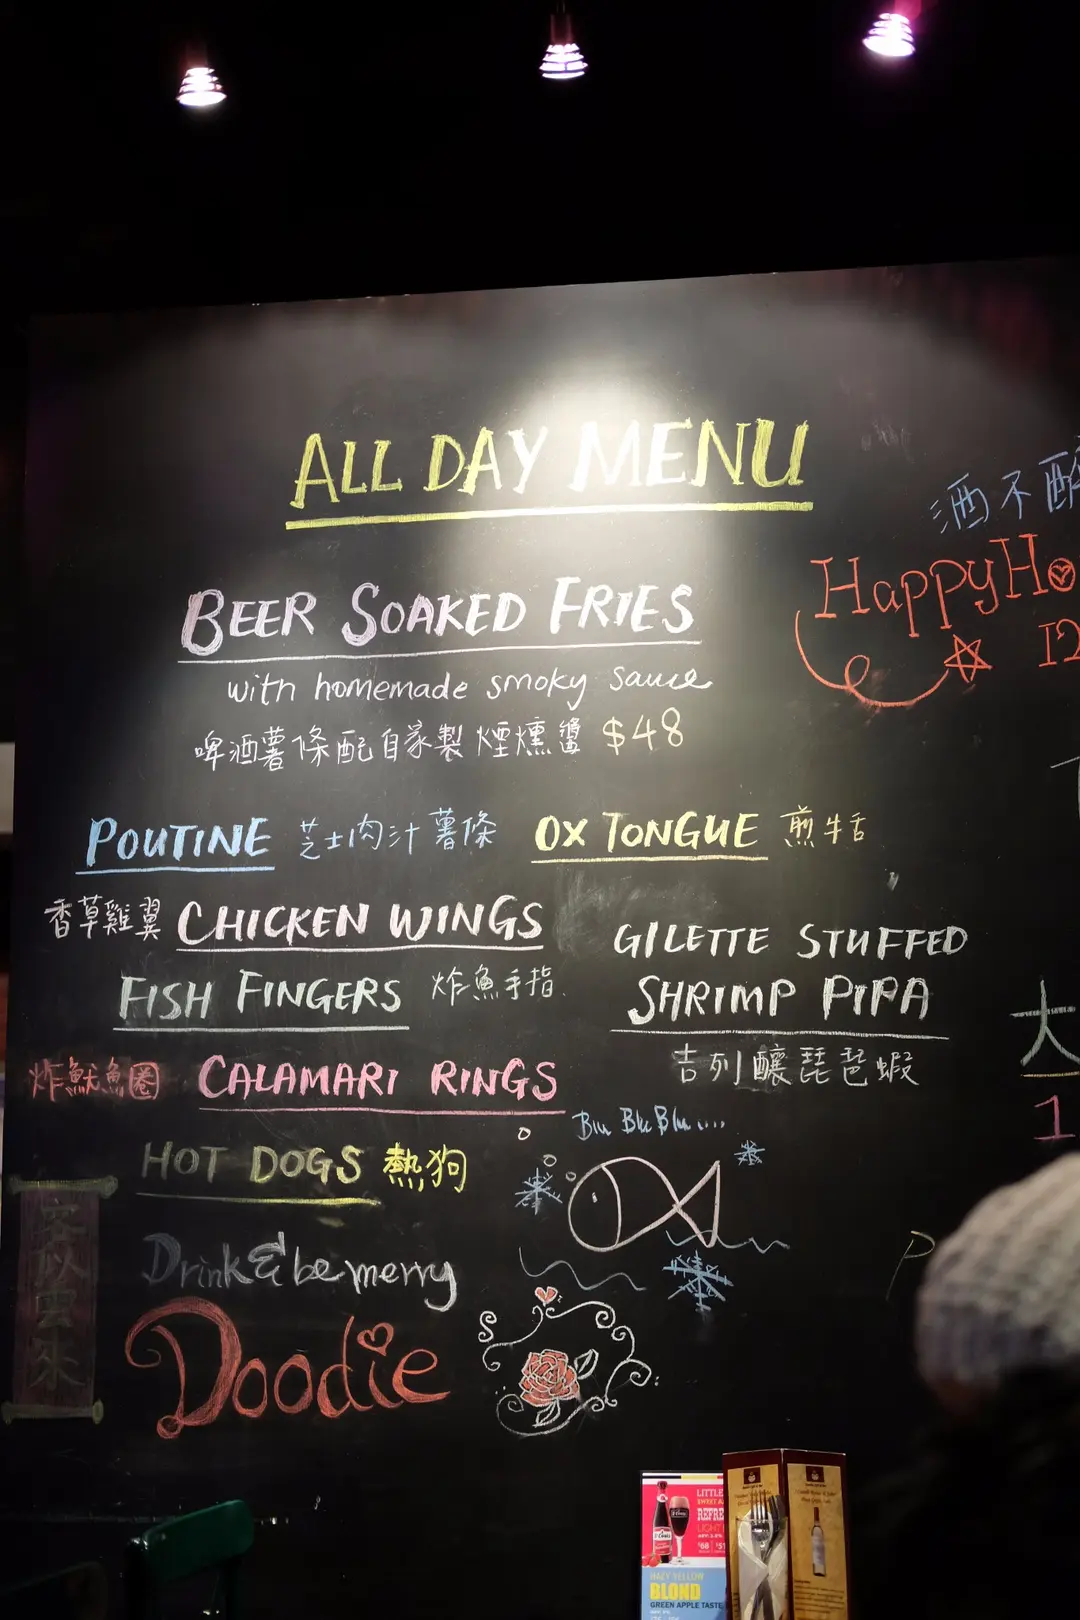 ALL DAY MENU
酒不醉
HappyHo
12
BEER SOAKED FRIES
with homemade smoky sauce
啤酒薯條配自家製煙燻醬 $48
POUTINE 芝士肉汁薯條
OX TONGUE 煎牛舌
香草雞翼 CHICKEN WINGS
GILETTE STUFFED
SHRIMP PIPA
吉列釀琵琶蝦
FISH FINGERS 炸魚手指
炸魷魚圈 CALAMARI RINGS
大
1
HOT DOGS 熱狗
Blu Blu Blu....
Drink & be merry
Doodie
客似雲來
P
LITTLE
SWEET A
REFRE
LIGHT
HAZY YELLOW
BLOND
GREEN APPLE TASTE